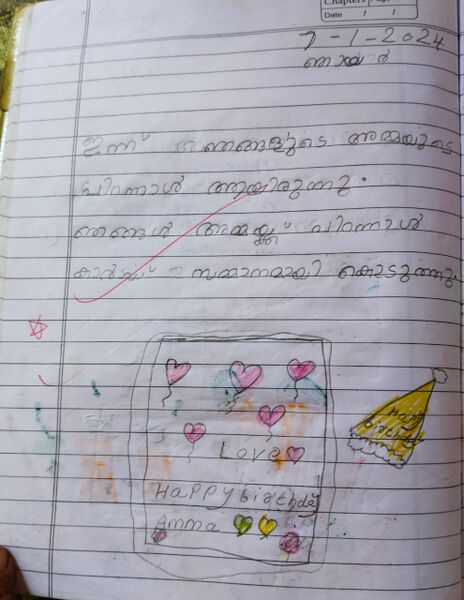 Chapters Page
Date / /
7-1-2024
ഞായർ
ഇന്ന് ഞങ്ങളുടെ അമ്മയുടെ
പിറന്നാൾ ആയിരുന്നു.
ഞങ്ങൾ അമ്മയ്ക്ക് പിറന്നാൾ
കാർഡ് സമ്മാനമായി കൊടുത്തു.
Happy
birthday
Love
Happy birthday
Amma